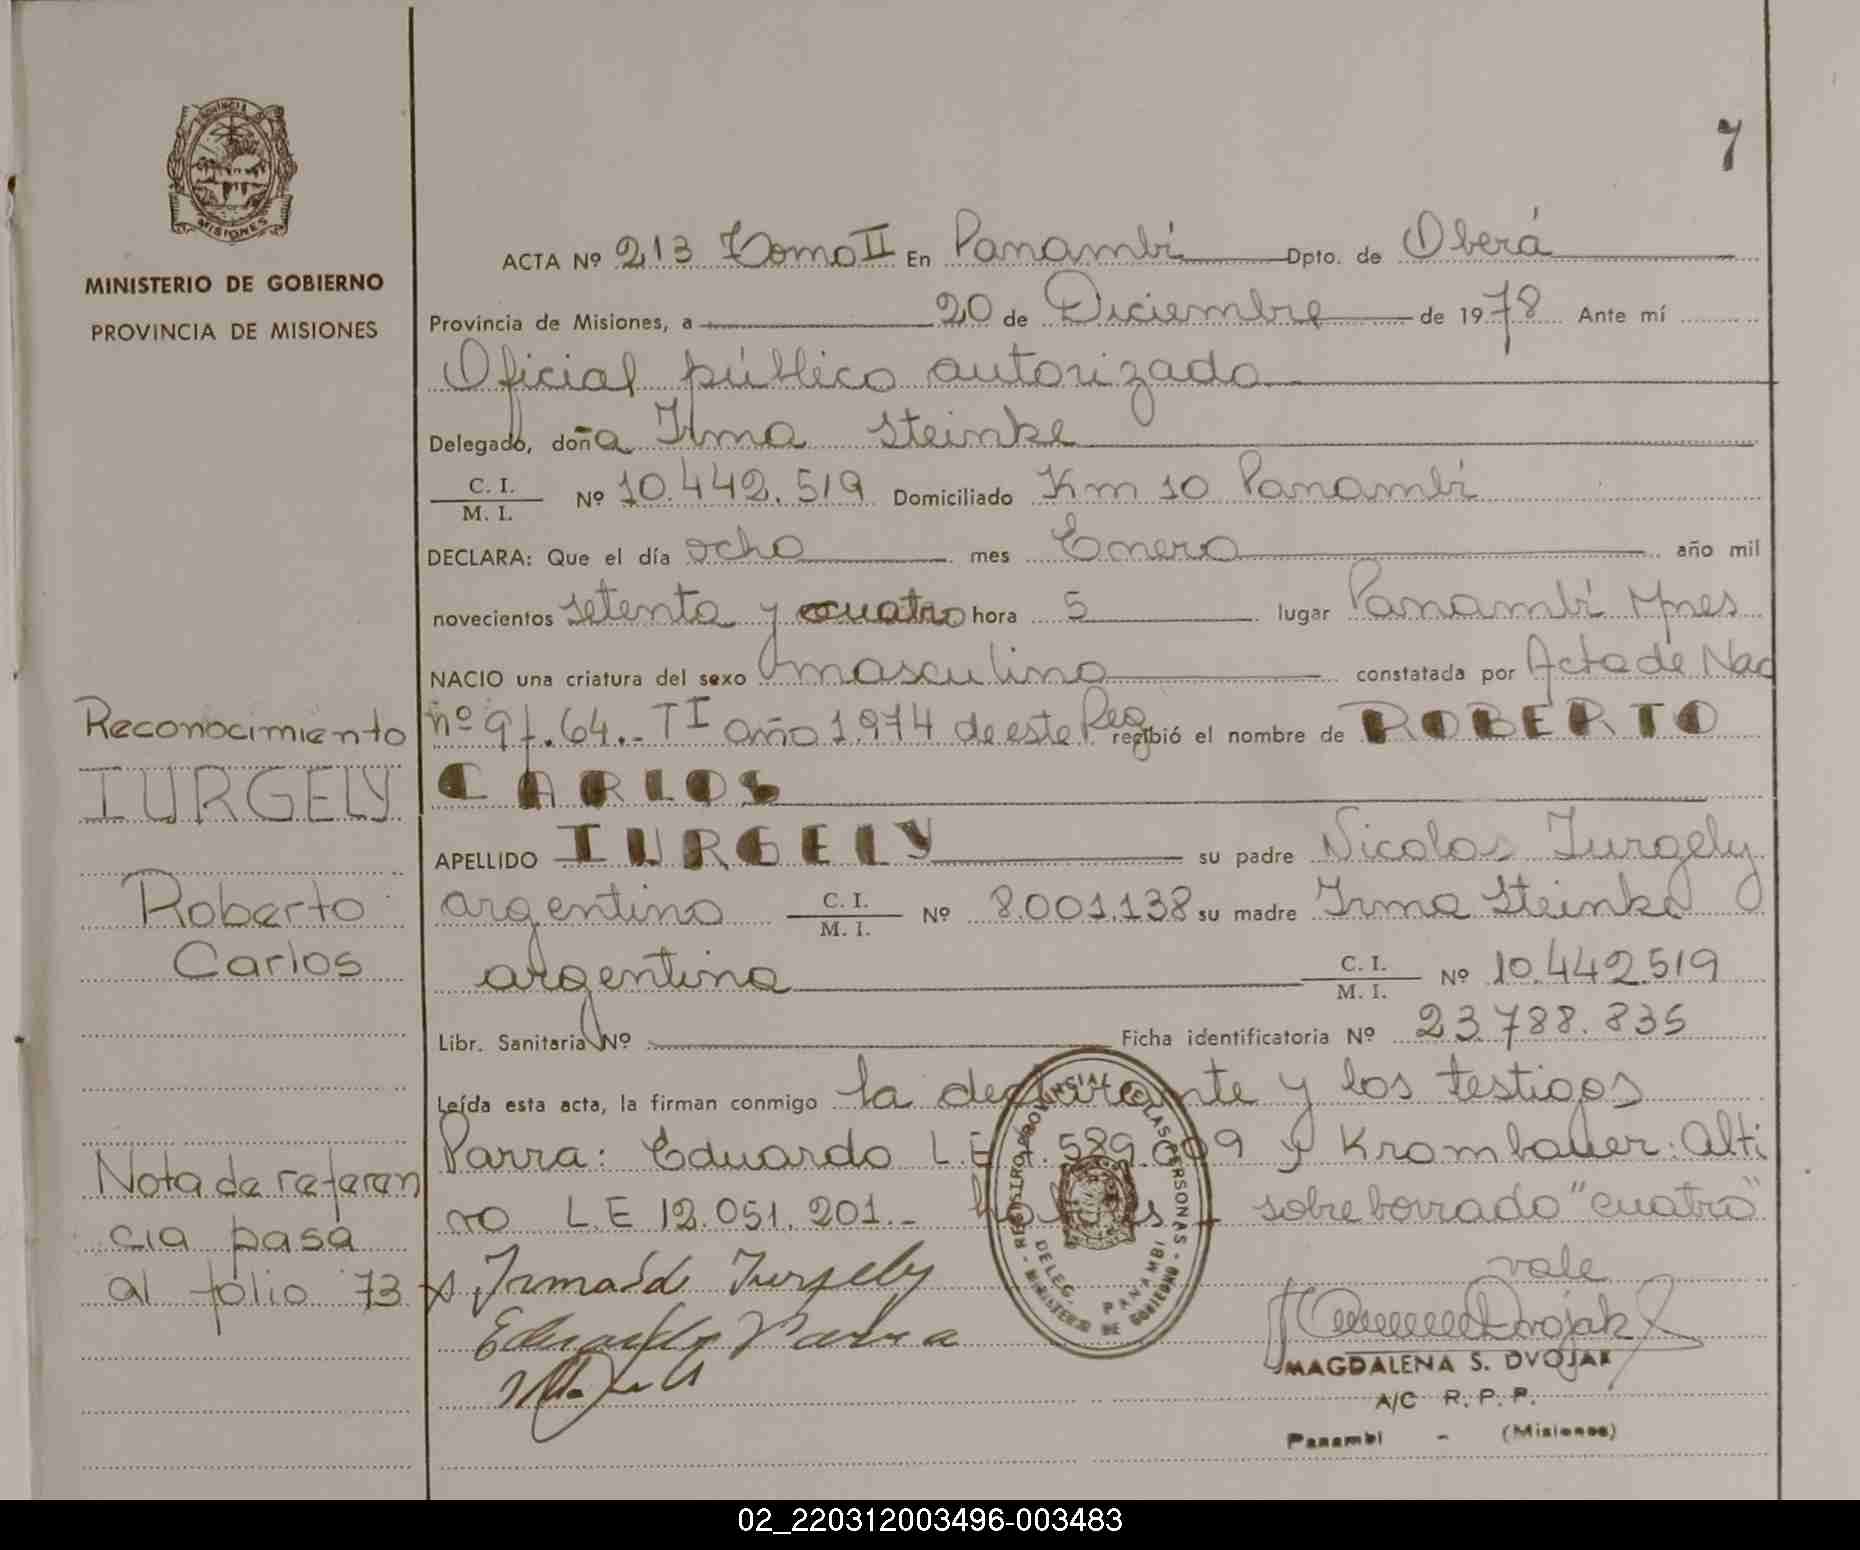 7
PROVINCIA
MISIONES
MINISTERIO DE GOBIERNO
PROVINCIA DE MISIONES
ACTA Nº 213 Tomo II En Panambí Dpto. de Oberá
Provincia de Misiones, a 20 de Diciembre de 1978 Ante mí
Oficial público autorizado
Delegado, doña Irma Steinke
C. I.
M. I. Nº 10.442.519 Domiciliado Km 10 Panambí
DECLARA: Que el día ocho mes Enero año mil
novecientos setenta y cuatro hora 5 lugar Panambí Mnes
NACIO una criatura del sexo masculino constatada por Acta de Nac
nº 9f.64.- T I año 1974 de este Reg recibió el nombre de ROBERTO
CARLOS
APELLIDO IURGELY su padre Nicolas Iurgely
argentino C. I.
M. I. Nº 8.001.138 su madre Irma Steinke
argentina C. I.
M. I. Nº 10.442.519
Libr. Sanitaria Nº Ficha identificatoria Nº 23.788.835
Leída esta acta, la firman conmigo la declarante y los testigos
Parra: Eduardo L.E 589. 09 y Krombauer: Alti
no L.E 12.051.201.- sobre borrado "cuatro"
vale
Reconocimiento
IURGELY
Roberto
Carlos
Nota de referen
cia pasa
al folio 73
Iurgely
Eduardo Parra
REGISTRO PROVINCIAL DE LAS PERSONAS
DELEG. PANAMBI
MINISTERIO DE GOBIERNO
Dvojak
MAGDALENA S. DVOJAK
A/C R. P. P.
Panambi - (Misiones)
02_220312003496-003483